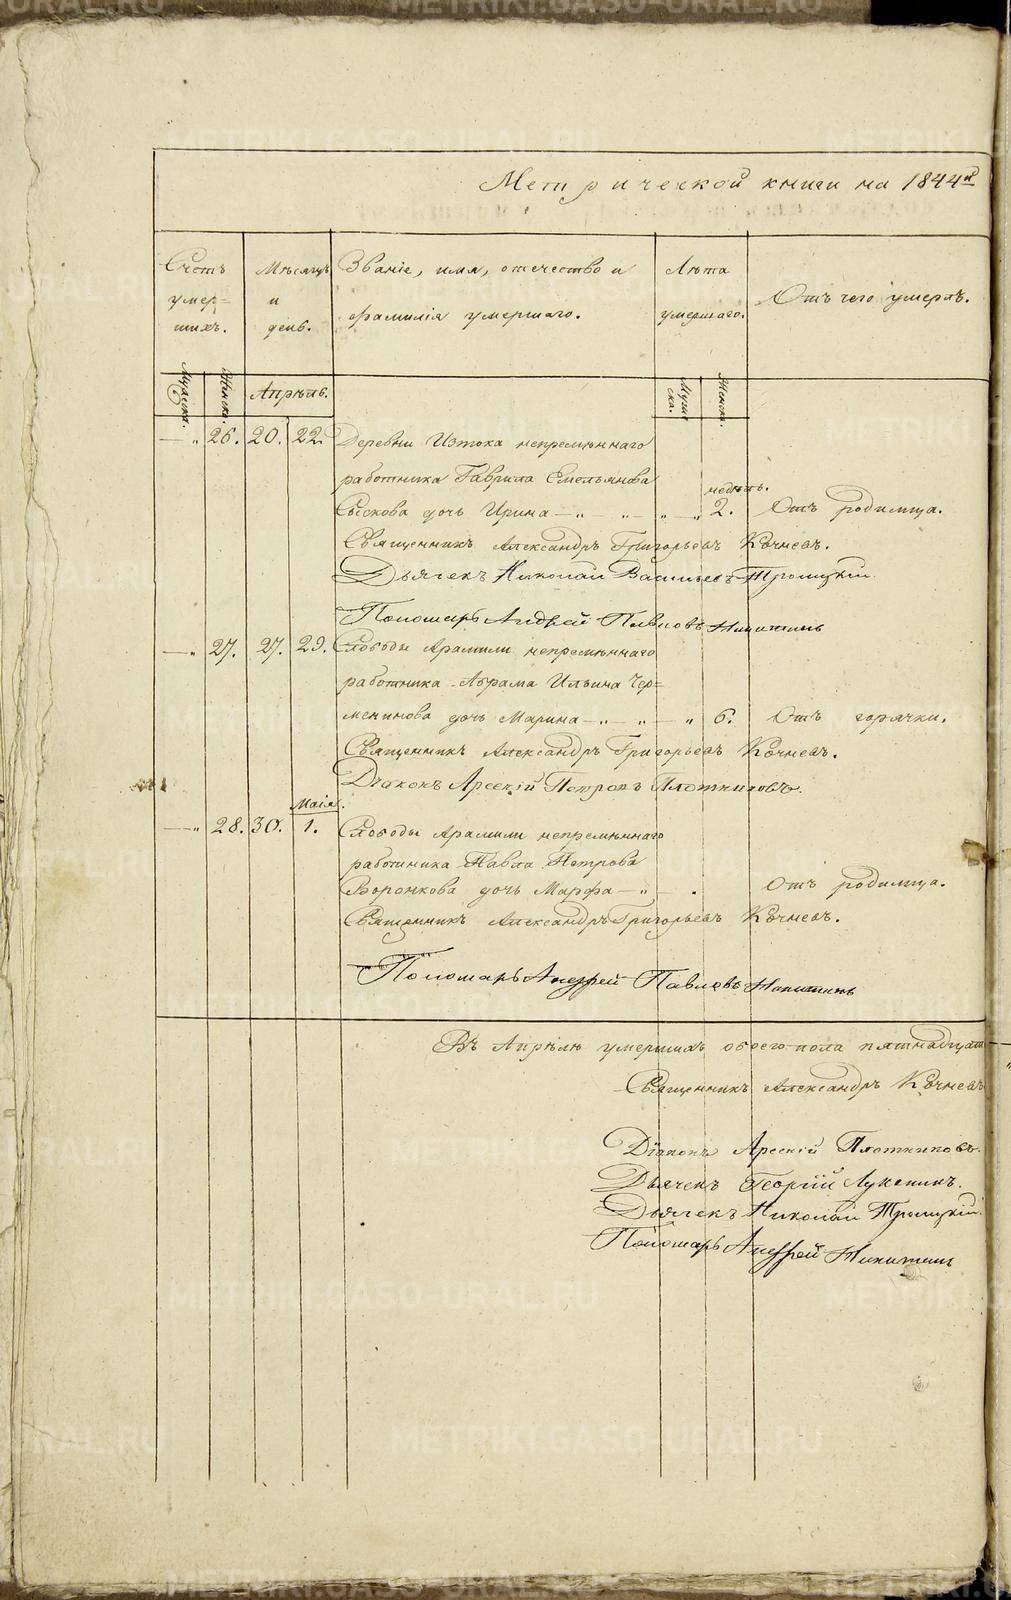 Метрической книги на 1844й
Счетъ умер= шихъ.
Мѣсяцъ и день.
Званіе, имя, отечество и фамилія умершаго.
Лѣта умершаго.
Отъ чего умеръ.
Мужска. Женска. Апрѣль. Мужс ка. Женска.
— „ 26. 20. 22. Деревни Истока непремѣннаго
работника Гаврила Емельянова
недѣль.
дочь Ирина — „ — „ — „ — „ 2. Отъ родимца.
Священникъ Александръ Григорьевъ Кочневъ.
Дьячекъ Николай Васильевъ Троицкій
Пономарь Андрей Павловъ Никитинъ
— „ 27. 27. 29. Слободы Арамили непремѣннаго
работника Абрама Ильина Чер=
менинова дочь Марина — „ — „ — „ 6. Отъ горячки.
Священникъ Александръ Григорьевъ Кочневъ.
Діаконъ Арсеній Петровъ Плотниковъ.
Маія.
— „ 28. 30. 1. Слободы Арамили непремѣннаго
работника Павла Петрова
Воронкова дочь Марфа — „ — . Отъ родимца.
Священникъ Александръ Григорьевъ Кочневъ.
Пономарь Андрей Павловъ Никитинъ
Въ Апрѣлѣ умершихъ обоего пола пятнадцать
Священникъ Александръ Кочневъ
Діаконъ Арсеній Плотниковъ.
Дьячекъ Георгій Луканинъ.
Дьячекъ Николай Троицкій
Пономарь Андрей Никитинъ
METRIKI.GASO-URAL.RU